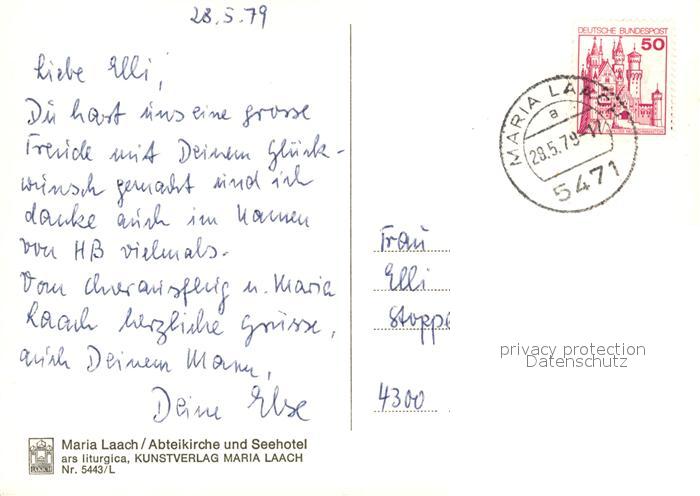 28.5.79
Liebe Elli,
Du hast uns eine grosse
Freude mit Deinem Glück-
wunsch gemacht und ich
danke auch im Namen
von HB vielmals.
Vom Chorausflug n. Maria
Laach herzliche Grüsse,
auch Deinem Mann,
Deine Else
Maria Laach / Abteikirche und Seehotel
ars liturgica, KUNSTVERLAG MARIA LAACH
Nr. 5443/L
DEUTSCHE BUNDESPOST
50
MARIA LAACH
a
28.5.79-17
5471
Frau
Elli
Stopp
4300
privacy protection
Datenschutz